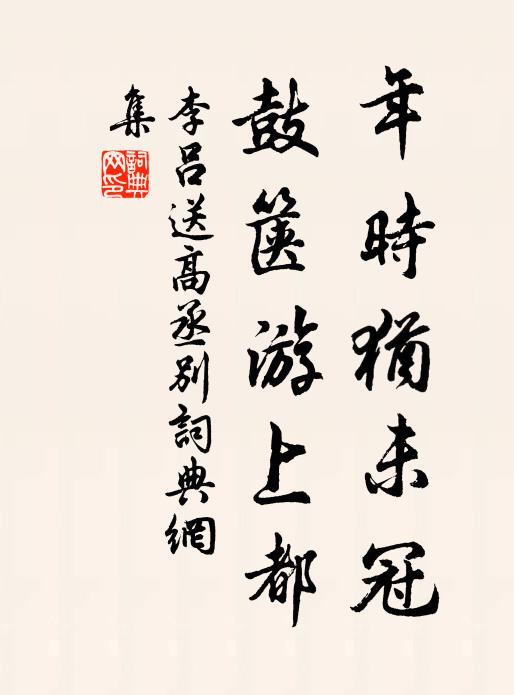 年時猶未冠
鼓篋游上都
李呂送高丞別詞典網
集
詞典
网印